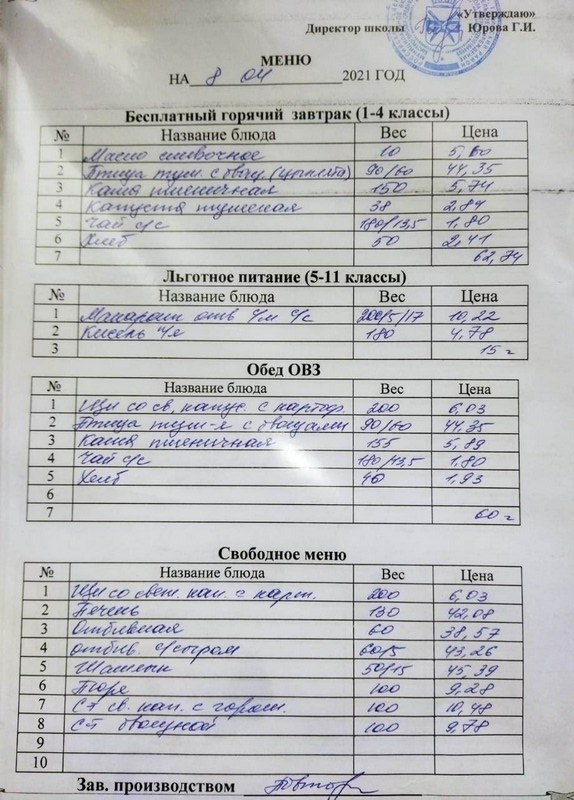 «Утверждаю»
Директор школы Юрова Г.И.
МЕНЮ
НА 8 04 2021 ГОД
Бесплатный горячий завтрак (1-4 классы)
№ Название блюда Вес Цена
1 Масло сливочное 10 5,60
2 Птица туш. с овощ. (цыплята) 90/60 44,35
3 Каша пшеничная 150 5,74
4 Капуста тушеная 38 2,84
5 Чай с/с 180/13,5 1,80
6 Хлеб 50 2,41
7 62,74
Льготное питание (5-11 классы)
№ Название блюда Вес Цена
1 Макароны отв с/м с/с 200/5/17 10,22
2 Кисель 180 4,78
3 15 =
Обед ОВЗ
№ Название блюда Вес Цена
1 Щи со св, капус. с картоф. 200 6,03
2 Птица туш-я с овощами 90/60 44,35
3 Каша пшеничная 155 5,89
4 Чай с/с 180/13,5 1,80
5 Хлеб 40 1,93
6
7 60 =
Свободное меню
№ Название блюда Вес Цена
1 Щи со свеж. кап. с карт. 200 6,03
2 Печень 130 42,08
3 Отбивная 60 38,57
4 отбив. с/сыром 60/5 43,26
5 Шашлык 50/15 45,39
6 Пюре 100 9,28
7 Ст св. кап. с горош. 100 10,48
8 Ст овощной 100 9,78
9
10
Зав. производством